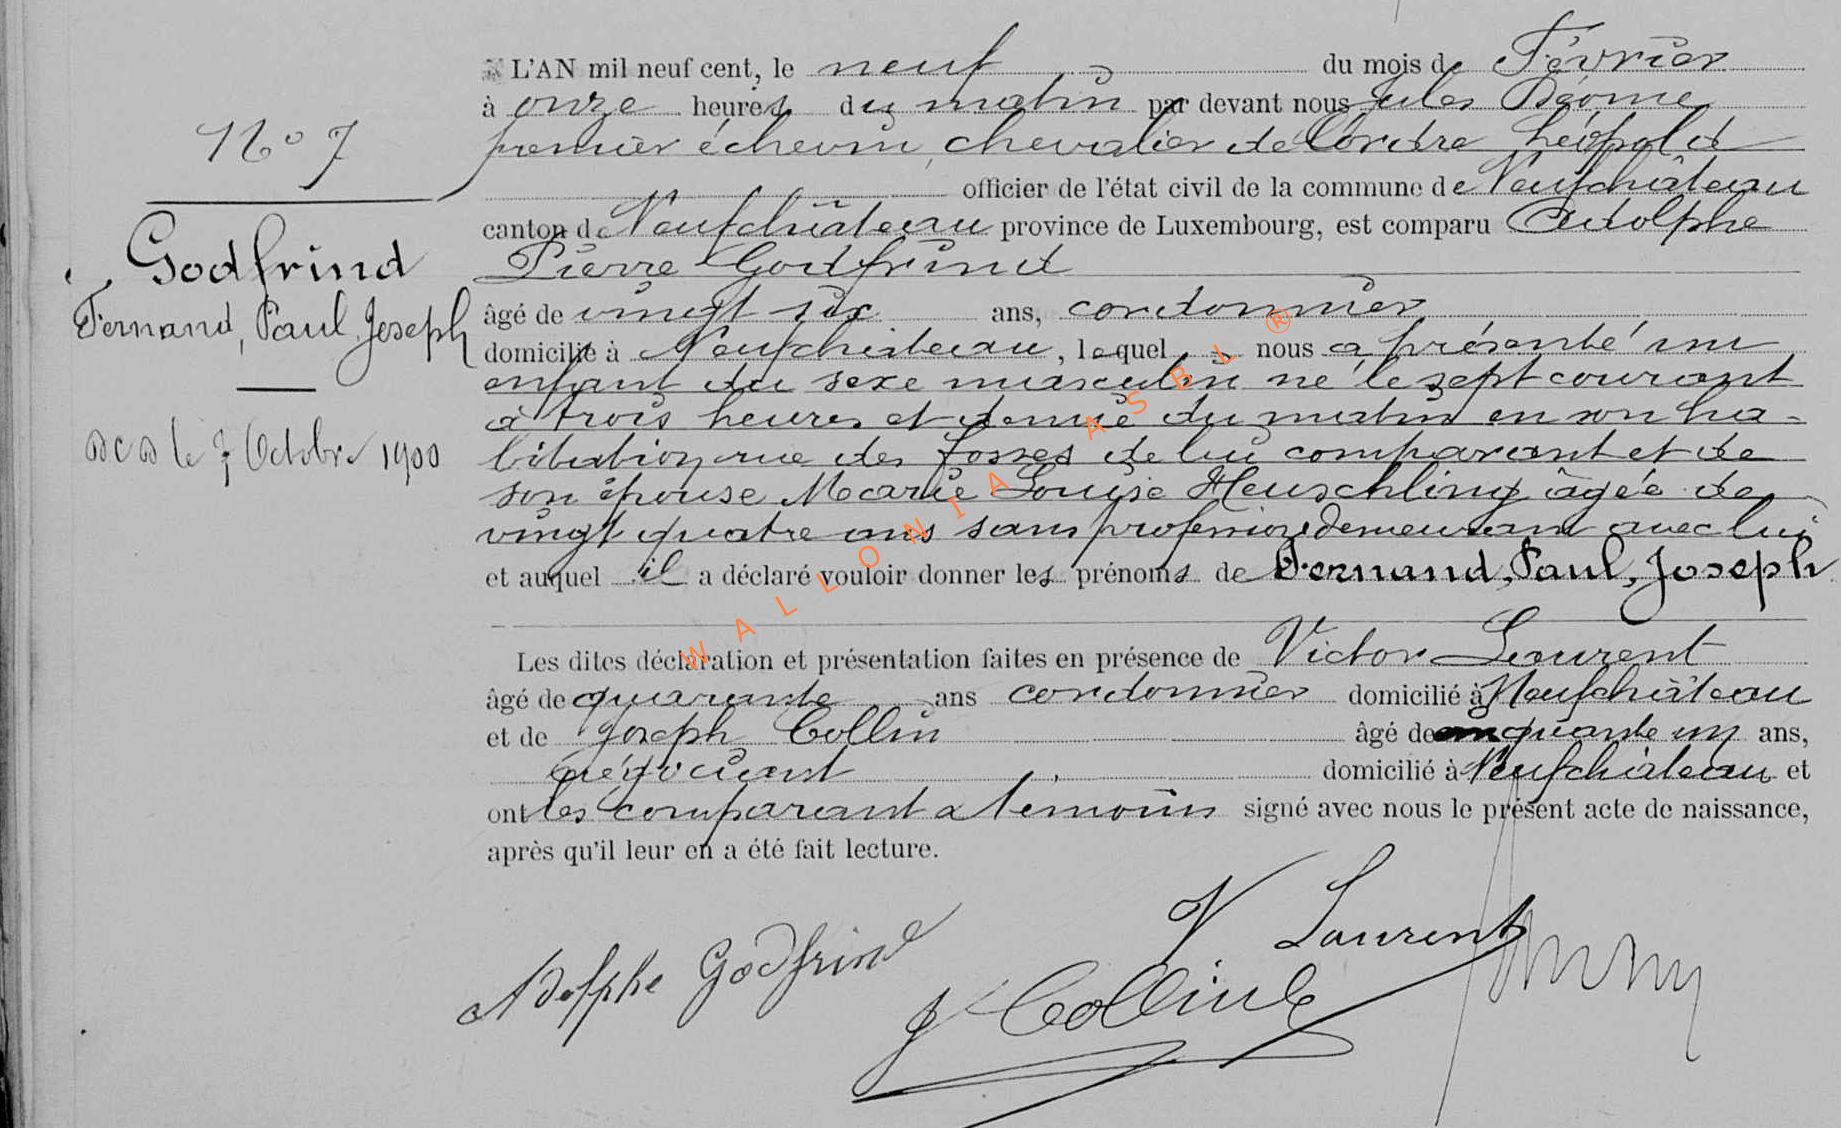 L'AN mil neuf cent, le neuf du mois de Février
à onze heures du matin par devant nous Jules
premier échevin, chevalier de l'ordre Léopold
officier de l'état civil de la commune de Neufchâteau
canton de Neufchâteau province de Luxembourg, est comparu Adolphe
Pierre Godfrind
âgé de vingt six ans, cordonnier
domicilié à Neufchâteau, lequel nous a présenté un
enfant du sexe masculin né le sept courant
à trois heures et demie du matin en son ha-
bitation rue des fosses de lui comparant et de
son épouse Marie Louise Heuschling âgée de
vingt quatre ans sans profession demeurant avec lui
et auquel il a déclaré vouloir donner les prénoms de Fernand, Paul, Joseph
Les dites déclaration et présentation faites en présence de Victor Laurent
âgé de quarante ans cordonnier domicilié à Neufchâteau
et de Joseph Collin âgé de quarante un ans,
négociant domicilié à Neufchâteau et
ont les comparant & témoins signé avec nous le présent acte de naissance,
après qu'il leur en a été fait lecture.
No 7
Godfrind
Fernand, Paul Joseph
DCD le 7 Octobre 1900
Adolphe Godfrind
V Laurent
J Collin
WALLONIA ASBL ®